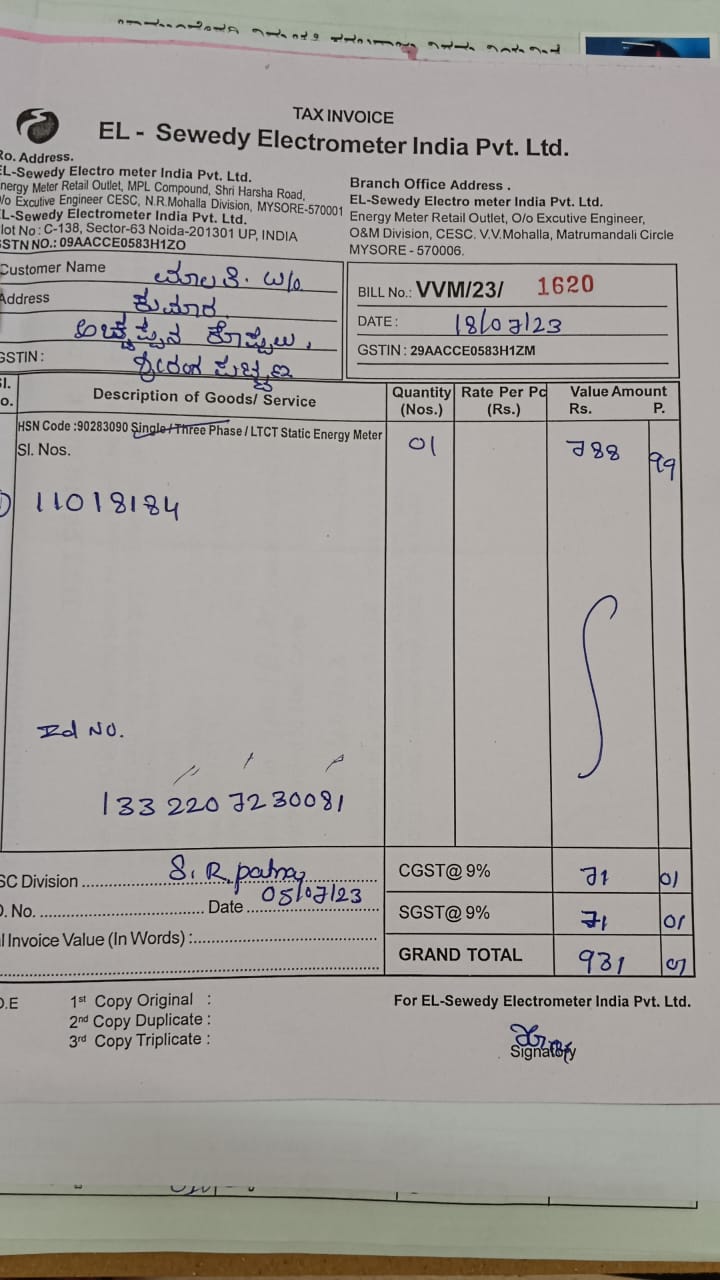 TAX INVOICE
EL - Sewedy Electrometer India Pvt. Ltd.
Ro. Address.
EL-Sewedy Electro meter India Pvt. Ltd.
nergy Meter Retail Outlet, MPL Compound, Shri Harsha Road,
/o Excutive Engineer CESC, N.R.Mohalla Division, MYSORE-570001
L-Sewedy Electrometer India Pvt. Ltd.
lot No : C-138, Sector-63 Noida-201301 UP, INDIA
STN NO.: 09AACCE0583H1ZO
Branch Office Address .
EL-Sewedy Electro meter India Pvt. Ltd.
Energy Meter Retail Outlet, O/o Excutive Engineer,
O&M Division, CESC. V.V.Mohalla, Matrumandali Circle
MYSORE - 570006.
Customer Name W/o
Address ಕುಮಾರ.
GSTIN :
BILL No.: VVM/23/ 1620
DATE : 18/07/23
GSTIN : 29AACCE0583H1ZM
Sl. No. Description of Goods/ Service Quantity (Nos.) Rate Per Pc (Rs.) Value Amount Rs. P.
HSN Code :90283090 Single / Three Phase / LTCT Static Energy Meter 01 788 99
Sl. Nos.
11018184
Id NO.
133 220 7230081
SC Division S. R. patna
CGST@ 9% 71 01
. No. Date 05/07/23
SGST@ 9% 71 01
l Invoice Value (In Words) :
GRAND TOTAL 931 01
O.E 1st Copy Original :
2nd Copy Duplicate :
3rd Copy Triplicate :
For EL-Sewedy Electrometer India Pvt. Ltd.
Signatory